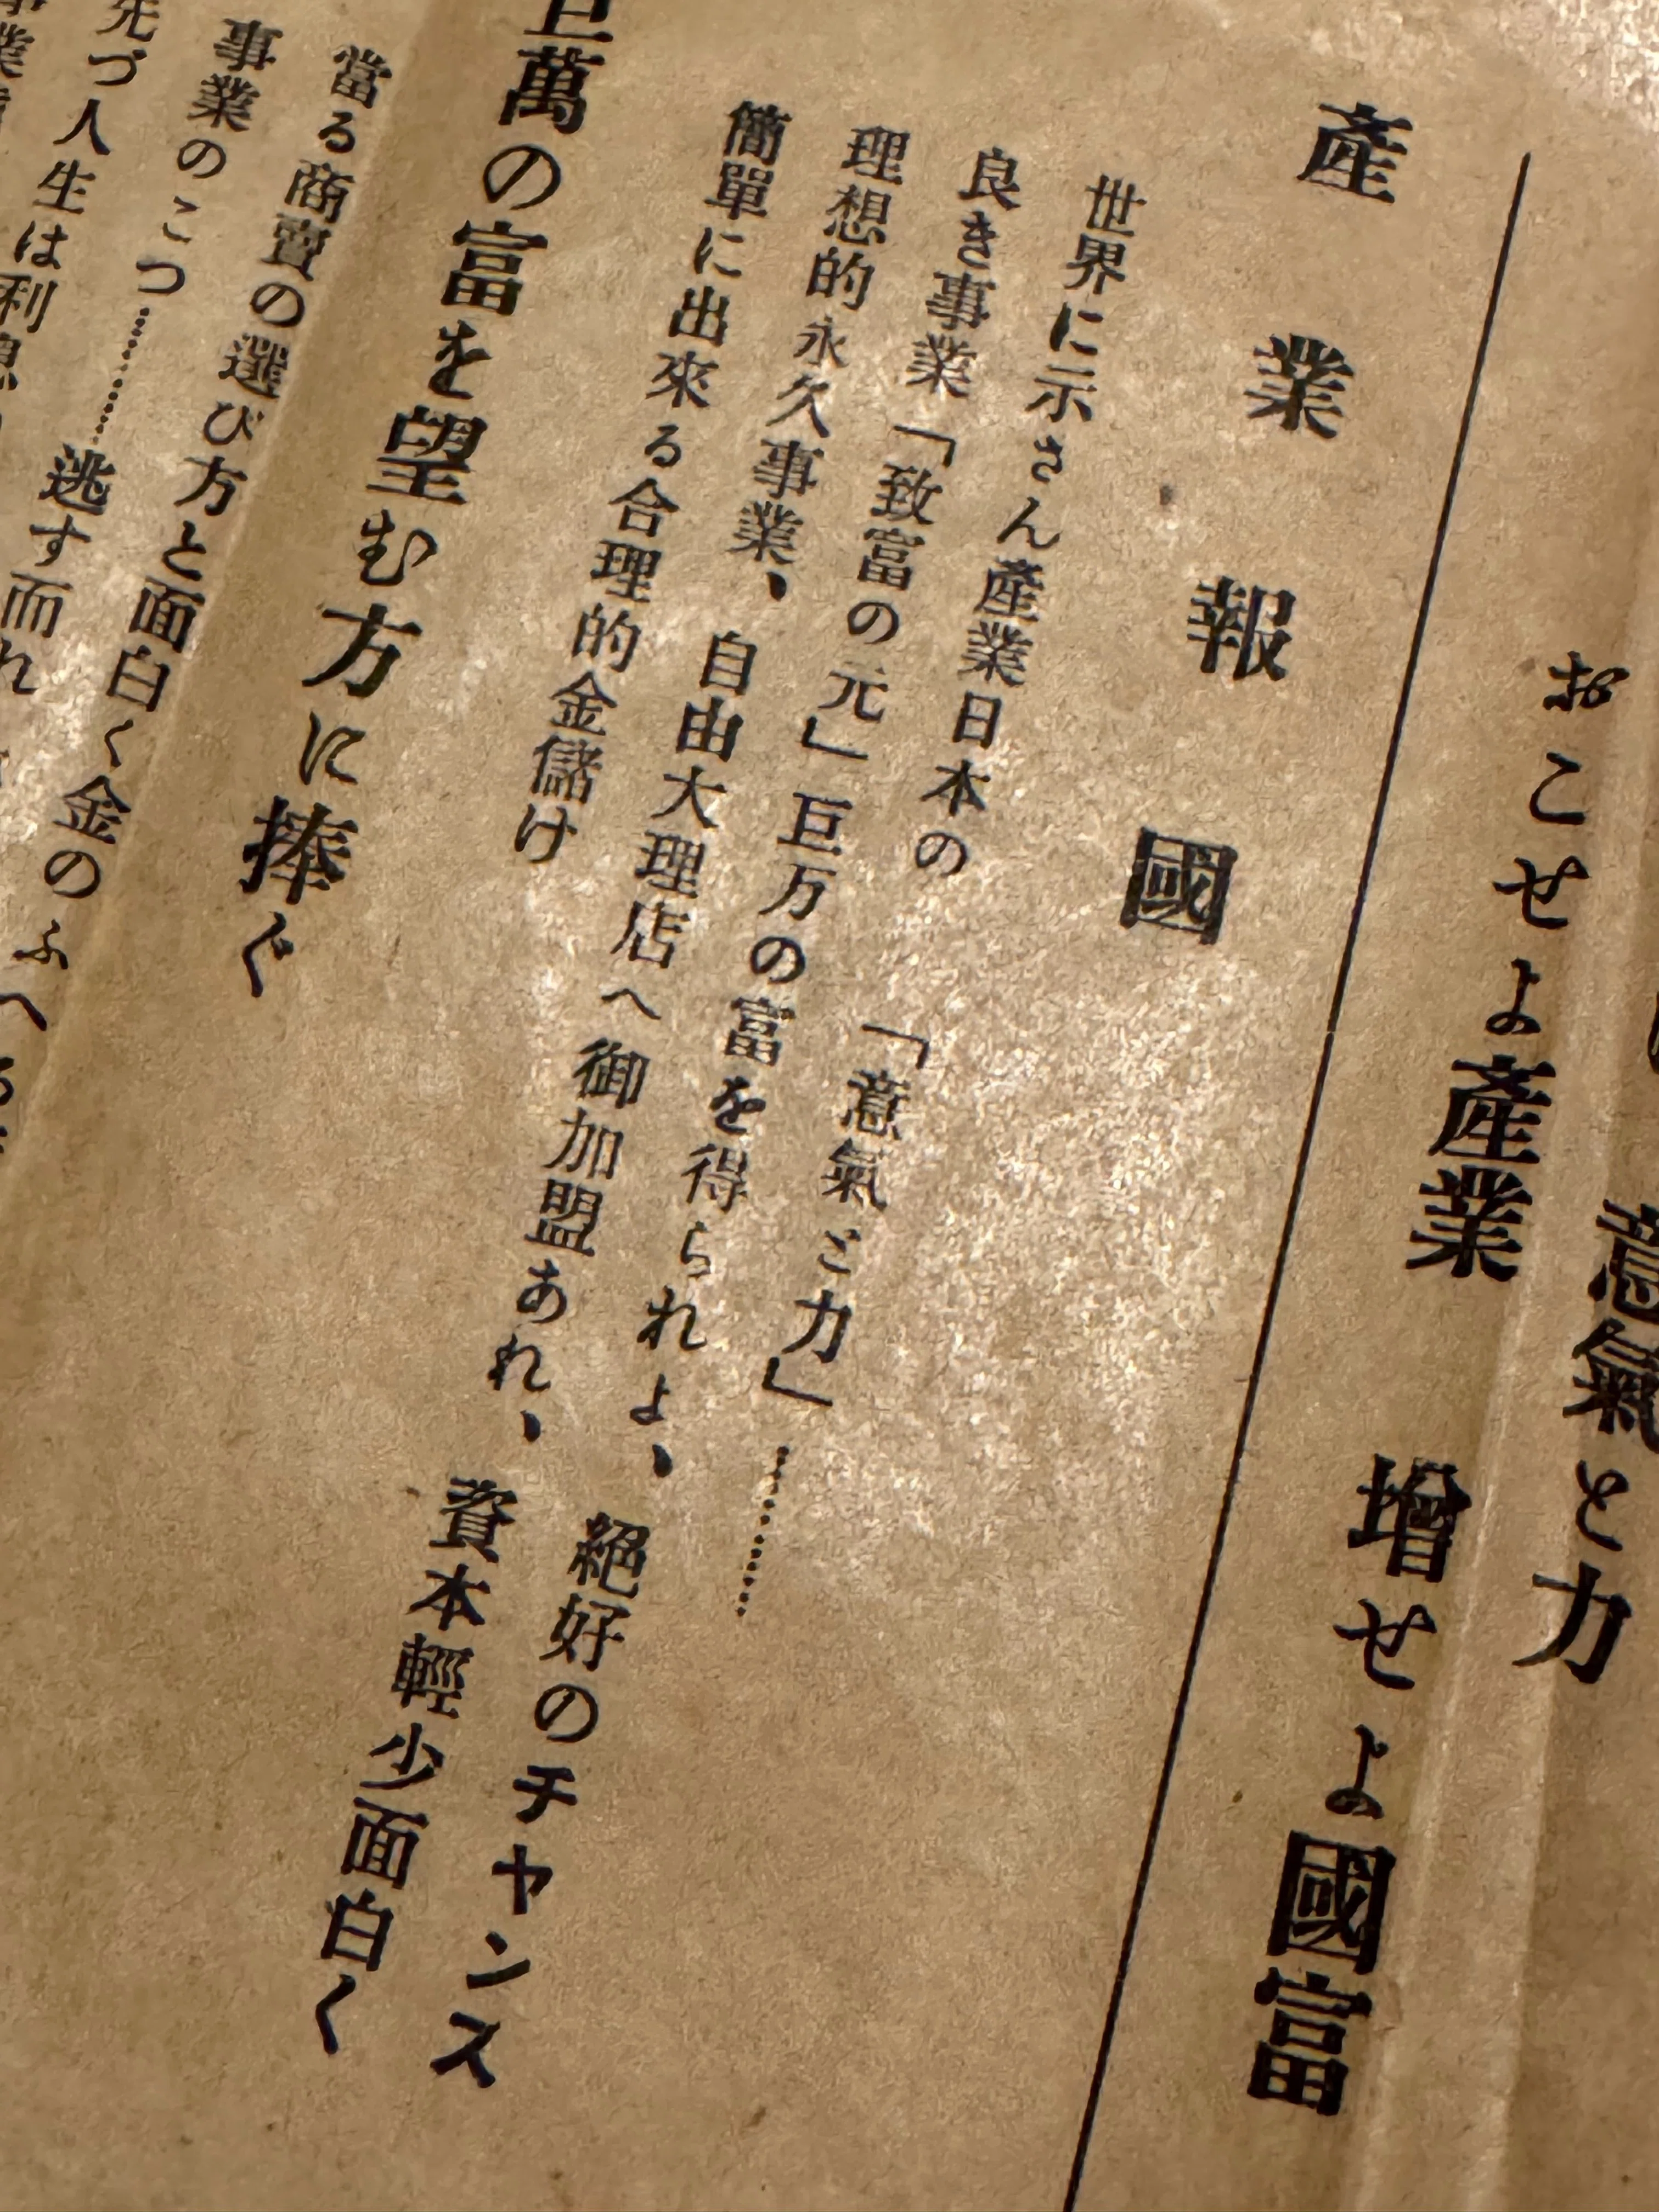 意氣と力
おこせよ產業　增せよ國富
產業報國
世界に示さん產業日本の　「意氣と力」………
良き事業「致富の元」巨万の富を得られよ、絕好のチヤンス
理想的永久事業、自由大理店へ御加盟あれ、資本輕少面白く
簡單に出來る合理的金儲け
巨萬の富を望む方に捧ぐ
當る商賣の選び方と面白く金のふへる
事業のこつ………逃す而れ
先づ人生は利